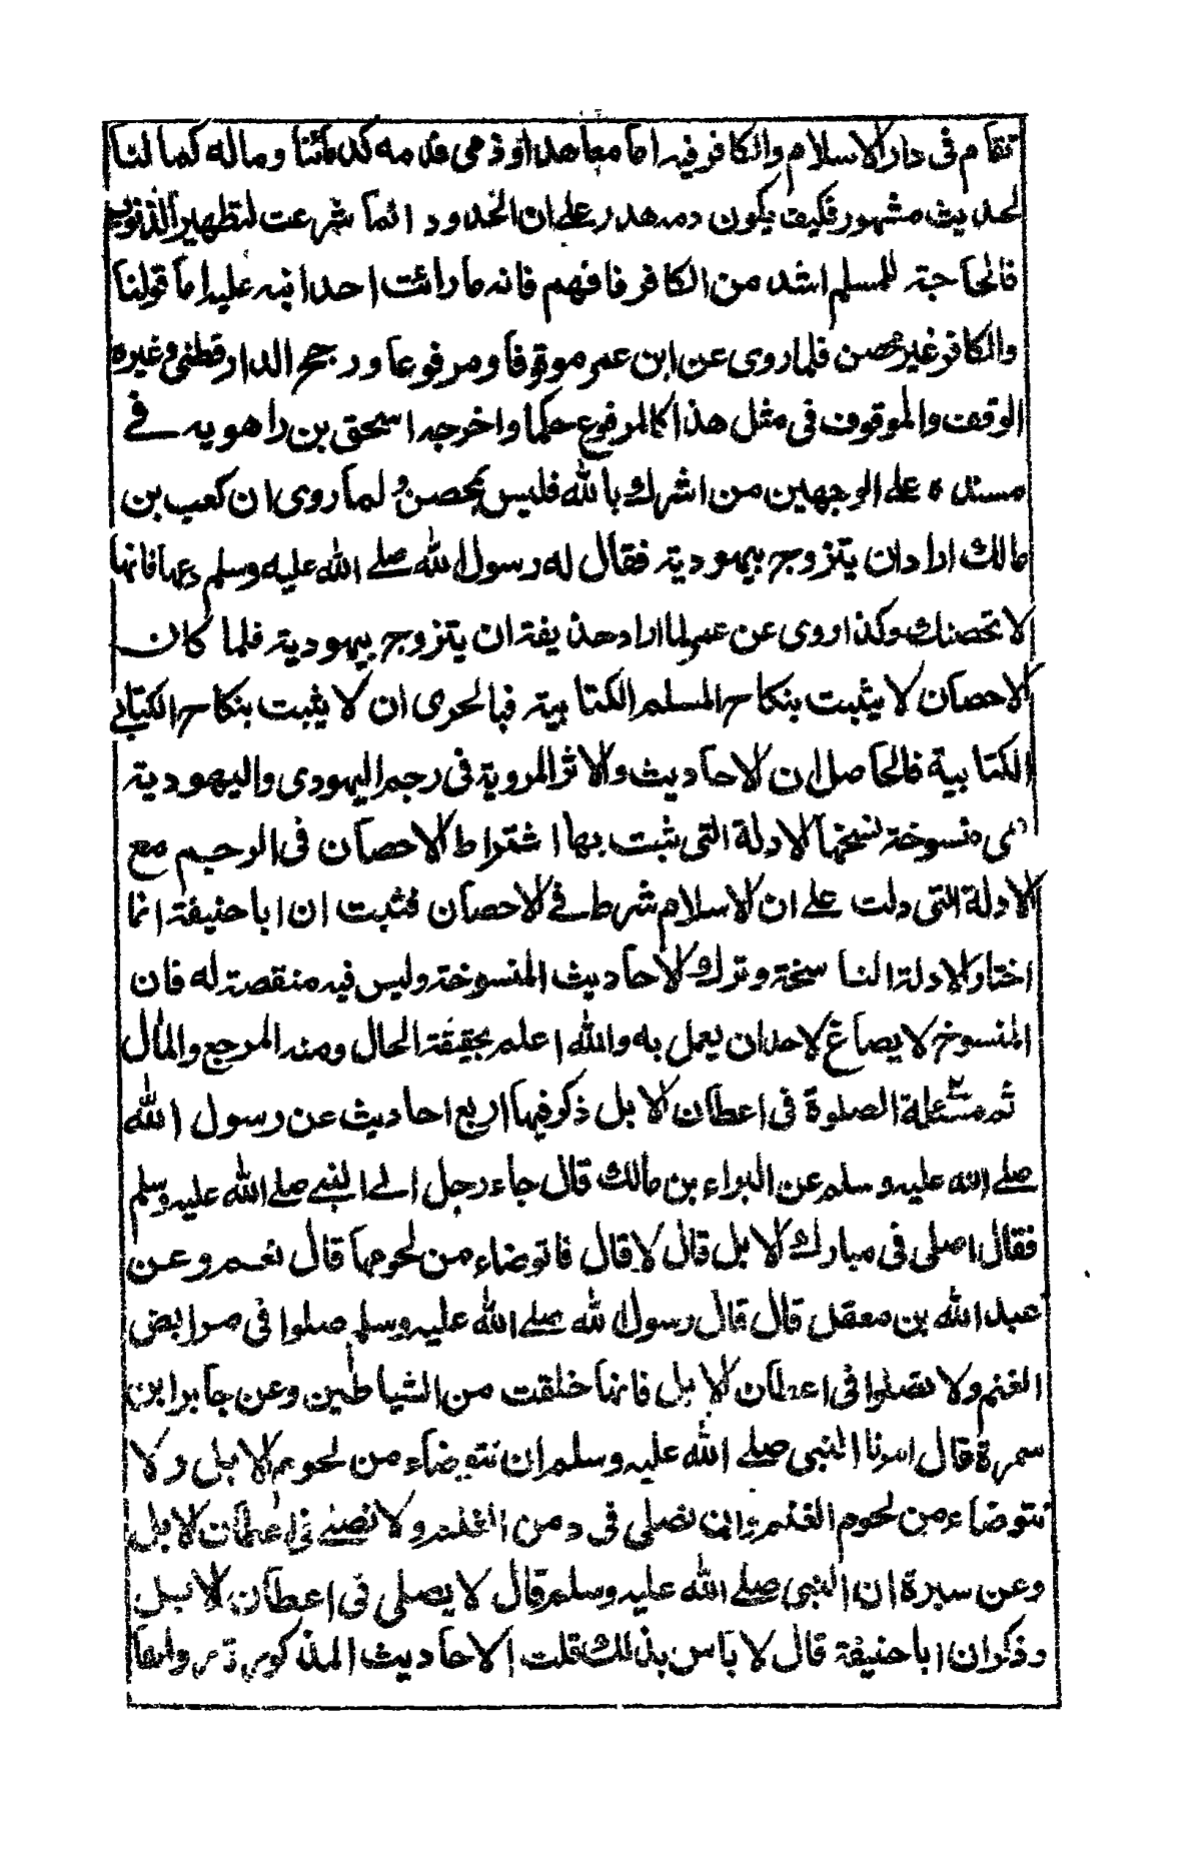 تقام فى دار الاسلام والكافر فيه اما معاهد او ذمى فدمه كدمائنا وماله كمالنا
لحديث مشهور فكيف يكون دمه هدر على ان الحدود انما شرعت لتطهير الذنوب
فالحاجة للمسلم اشد من الكافر فافهم فانه ما رائت احدا نبه عليه اما قولنا
والكافر غير محصن فلما روى عن ابن عمر موقوفا ومرفوعا ورجح الدارقطنى وغيره
الوقف والموقوف فى مثل هذا كالمرفوع حكما واخرجه اسحق بن راهويه فى
مسنده على الوجهين من اشرك بالله فليس بمحصن ولما روى ان كعب بن
مالك اراد ان يتزوج بيهودية فقال له رسول الله صلى الله عليه وسلم دعها فانها
لا تحصنك وكذا روى عن عمر لما اراد حذيفة ان يتزوج بيهودية فلما كان
الاحصان لا يثبت بنكاح المسلم الكتابية فبالحرى ان لا يثبت بنكاح الكتابى
الكتابية فالحاصل ان الاحاديث والاثر المروية فى رجم اليهودى واليهودية
هى منسوخة نسختها الادلة التى يثبت بها اشتراط الاحصان فى الرجم مع
الادلة التى دلت على ان الاسلام شرط فى الاحصان فثبت ان ابا حنيفة انما
اختار الادلة الناسخة وترك الاحاديث المنسوخة وليس فيه منقصة له فان
المنسوخ لا يصاغ لاحد ان يعمل به والله اعلم بحقيقة الحال ومنه المرجع والمآل
ثم مسئلة الصلوة فى اعطان الابل ذكر فيها اربع احاديث عن رسول الله
صلى الله عليه وسلم عن البراء بن مالك قال جاء رجل الى النبى صلى الله عليه وسلم
فقال اصلى فى مبارك الابل قال لا قال فاتوضاء من لحومها قال نعم وعن
عبد الله بن معقل قال قال رسول الله صلى الله عليه وسلم صلوا فى مرابض
الغنم ولا تصلوا فى اعطان الابل فانها خلقت من الشياطين وعن جابر ابن
سمرة قال امرنا النبى صلى الله عليه وسلم ان نتوضاء من لحوم الابل ولا
نتوضاء من لحوم الغنم وان نصلى فى دمن الغنم ولا نصلى فى اعطان الابل
وعن سبرة ان النبى صلى الله عليه وسلم قال لا يصلى فى اعطان الابل
وذكر ان ابا حنيفة قال لا باس بذلك قلت الاحاديث المذكورة